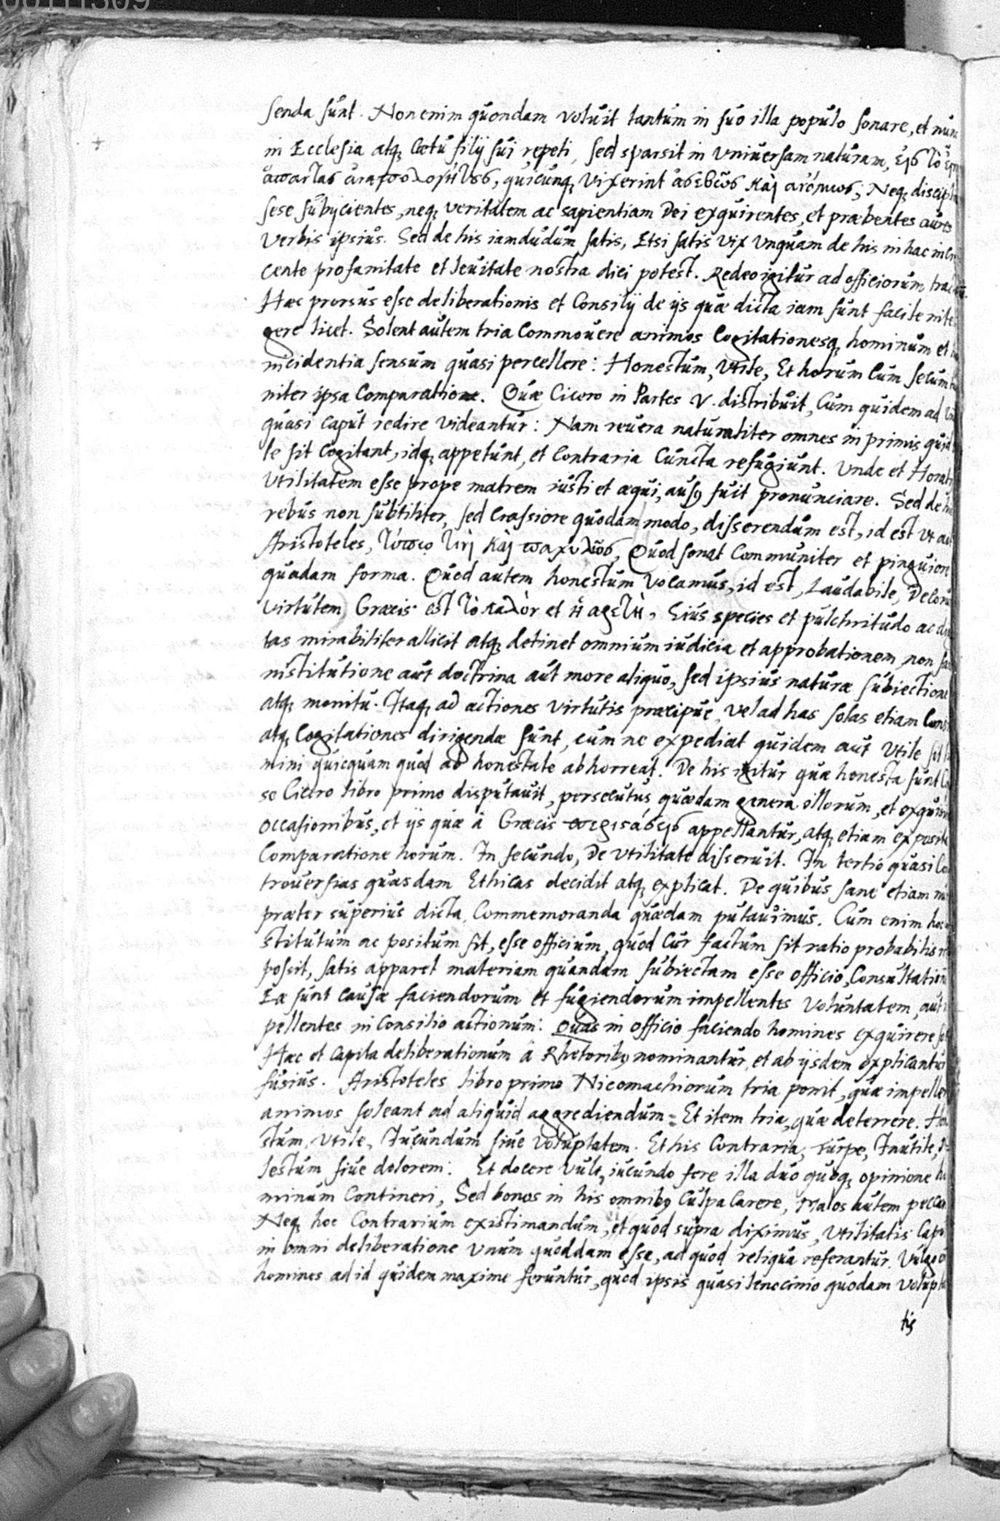 senda sunt. Non enim quondam voluit tantum in suo illa populo sonare, et nun
in Ecclesia atq; coetu filij sui repeti, sed sparsit in universam naturam, εἰς τὸ
ἅπαντας ἀναπολογήτους, quicunq; vixerint ἀσεβῶς καὶ ἀνόμως, Neq; discipli
sese subijcientes, neq; veritatem ac sapientiam Dei exquirentes, et præbentes aures
verbis ipsius. Sed de his iamdudum satis, Etsi satis vix unquam de his in hac
cente profanitate et levitate nostra dici potest. Redeo igitur ad officiorum trac
Hæc prorsus esse deliberationis et Consilij de ijs quæ dicta iam sunt facile inte
gere licet. Solent autem tria Commovere animos Cogitationesq; hominum et
incidentia sensum quasi percellere: Honestum, Utile, Et horum Cum secum
niter ipsa Comparatione. Quæ Cicero in Partes V. distribuit, Cum quidem ad
quasi Caput redire videantur: Nam revera naturaliter omnes in primis quid
le sit Cogitant, idq; appetunt, et Contraria Cuncta refugiunt. Unde et Horati
Utilitatem esse prope matrem iusti et æqui, ausus fuit pronunciare. Sed de
rebus non subtiliter, sed Crassiore quodam modo, disserendum est, id est ut
Aristoteles, τύπῳ τινὶ καὶ παχυλῶς, Quod sonat Communiter et pinguiore
quadam forma. Quod autem honestum vocamus, id est, Laudabile, Decoru
virtutem, Græcis est τὸ καλὸν et ἡ ἀρετὴ, Eius species et pulchritudo ac
tas mirabiliter allicit atq; detinet omnium iudicia et approbationem non
institutione aut doctrina aut more aliquo, sed ipsius naturæ subiectione
atq; monitu. Itaq; ad actiones virtutis præcipue, vel ad has solas etiam Cons
atq; Cogitationes dirigendæ sunt, cum ne expediat quidem aut utile sit
mini quicquam quod ab honestate abhorreat. De his igitur quæ honesta sunt
se Cicero libro primo disputavit, persecutus quædam genera illorum, et exquirens
occasionibus, et ijs quæ à Græcis περιστάσεις appellantur, atq; etiam exposita
Comparatione horum. In secundo, De utilitate disseruit. In tertio quasi Co
troversias quasdam Ethicas decidit atq; explicat. De quibus sane etiam
præter superius dicta, Commemoranda quædam putavimus. Cum enim hoc
stitutum ac positum sit, esse officium, quod Cur factum sit ratio probabilis
possit, satis apparet materiam quandam subiectam esse officio, Consultation
Eæ sunt Causæ faciendorum et fugiendorum impellentes voluntatem, aut
pellentes in Consilio actionum: Quas in officio faciendo homines exquirere
Hæc et Capita deliberationum à Rhetoribus nominantur, et ab ijsdem explicantur
fusius. Aristoteles libro primo Nicomachiorum tria ponit, quæ impelle
animos soleant ad aliquid aggrediendum: Et item tria, quæ deterrere. Ho
stum, Utile, Iucundum sive voluptatem. Et his Contraria, Turpe, Inutile,
lestum sive dolorem: Et docere vult, iucundo fere illa duo quoq; opinione ho
minum Contineri, Sed bonos in his omnibus Culpa Carere, Malos autem peccar
Neq; hoc Contrarium existimandum, et quod supra diximus, utilitatis Capu
in omni deliberatione unum quoddam esse, ad quod reliqua referantur. Vulgo
homines ad id quidem maxime feruntur, quod ipsis quasi lenocinio quodam volupta
tis